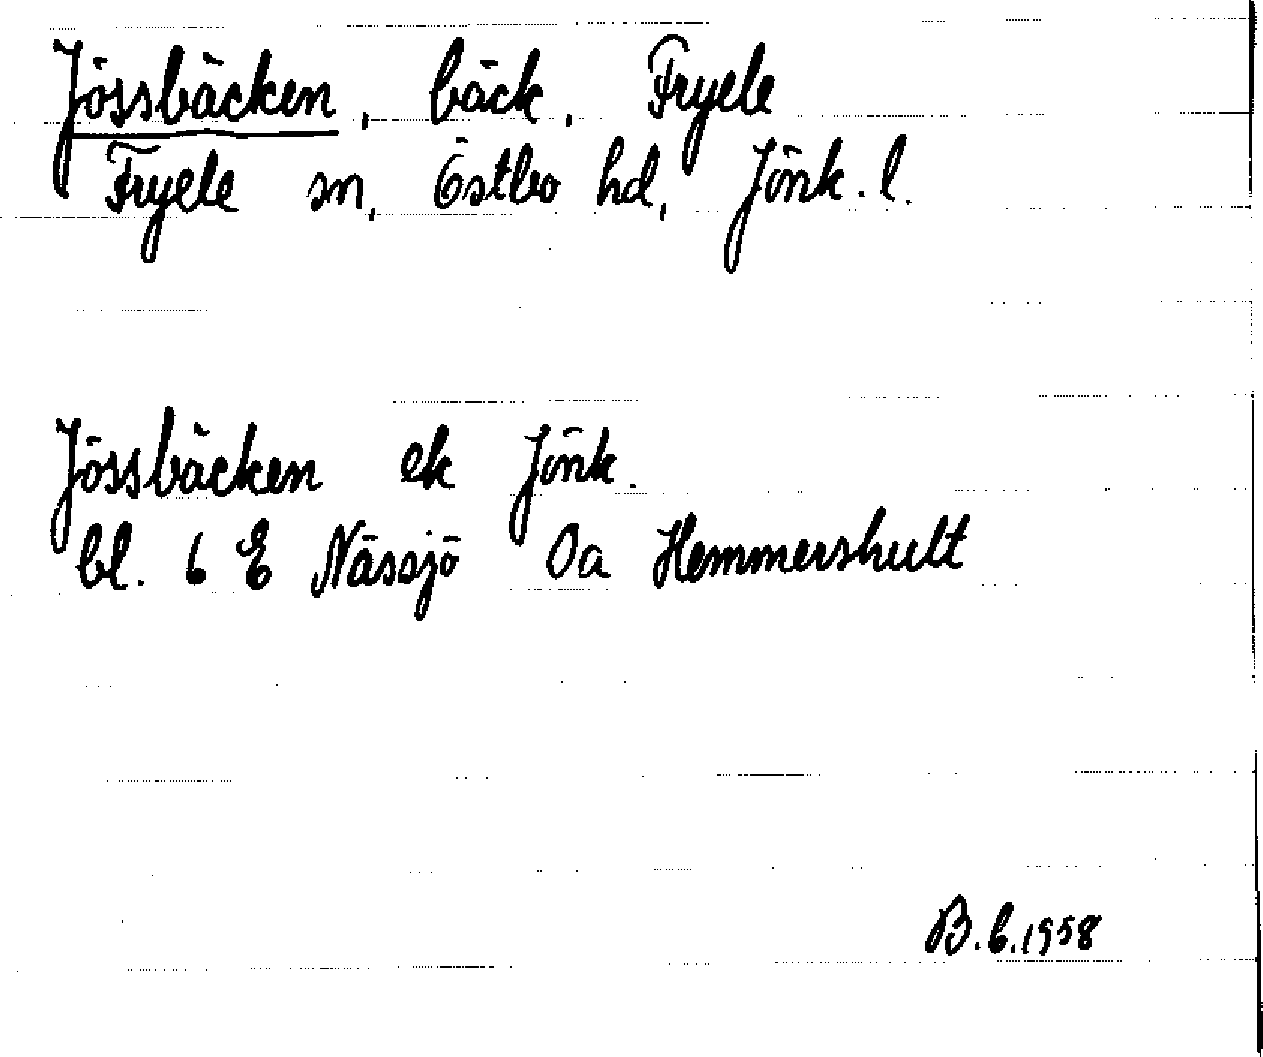 Jössbäcken, bäck, Fryele
Fryele sn, Östbo hd, Jönk. l.
Jössbäcken ek Jönk.
bl. 6 E Nässjö 0a Hemmershult
B.E.1958